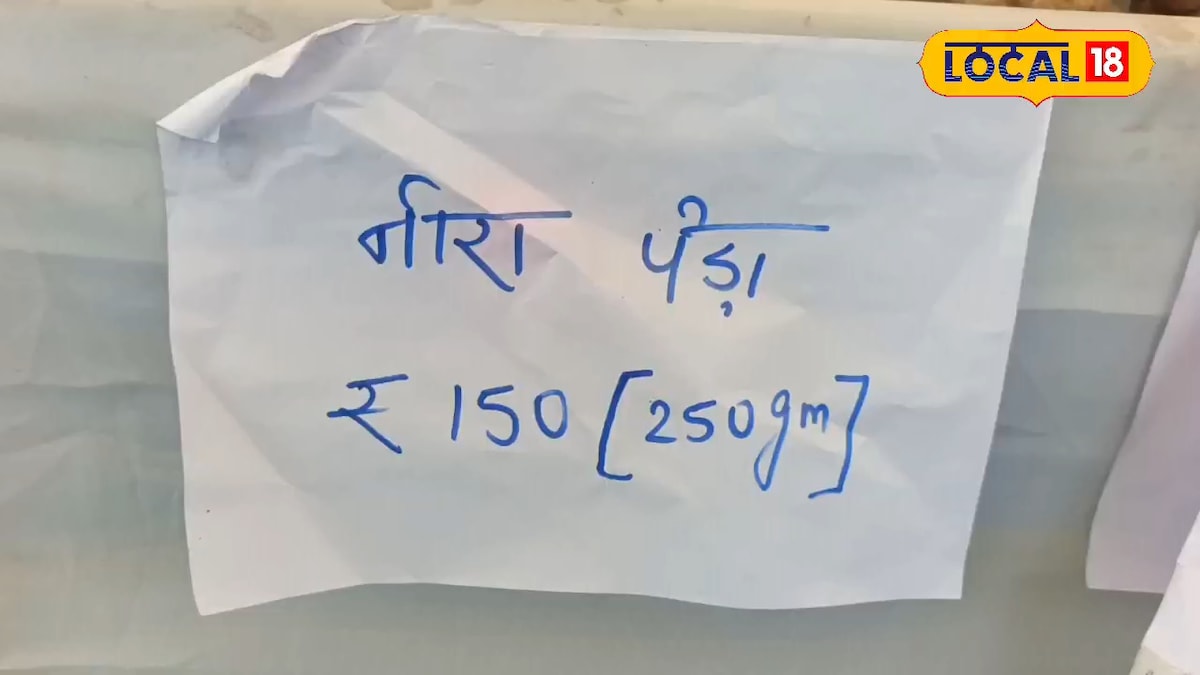 LOCAL 18
नीरा पेड़ा
₹ 150 [250gm]